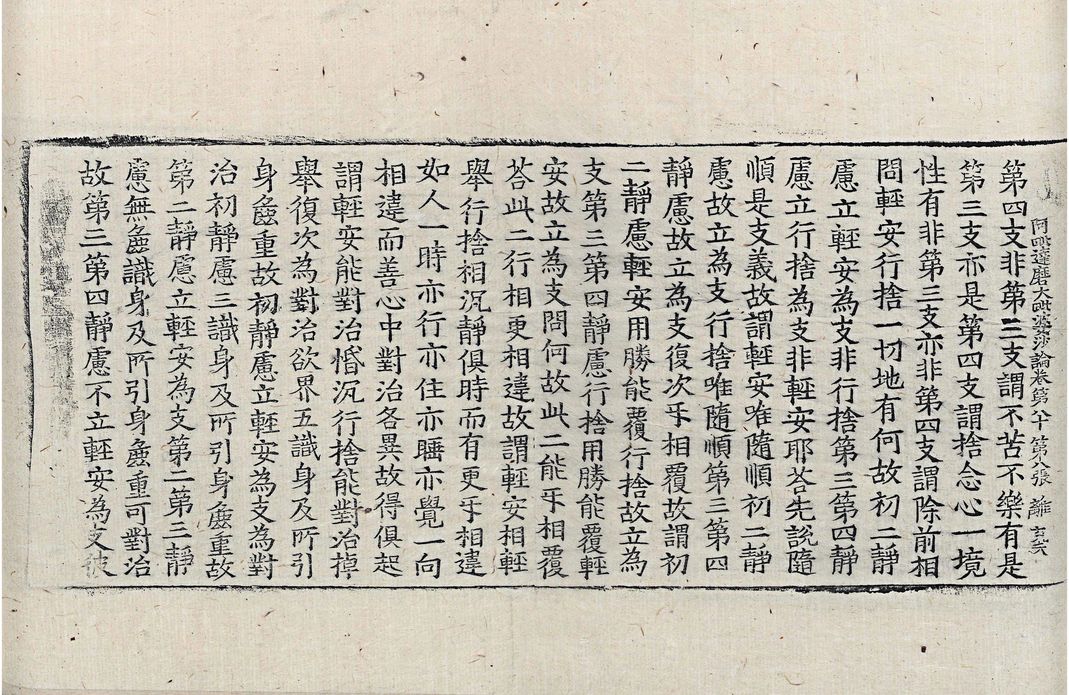 阿毗達磨大毗婆沙論卷第八十 第八張 離
第四支非第三支謂不苦不樂有是
第三支亦是第四支謂捨念心一境
性有非第三支亦非第四支謂除前相
問輕安行捨一切地有何故初二靜
慮立輕安為支非行捨第三第四靜
慮立行捨為支非輕安耶荅先說隨
順是支義故謂輕安唯隨順初二靜
慮故立為支行捨唯隨順第三第四
靜慮故立為支復次㸦相覆故謂初
二靜慮輕安用勝能覆行捨故立為
支第三第四靜慮行捨用勝能覆輕
安故立為支問何故此二能㸦相覆
荅此二行相更相違故謂輕安相輕
舉行捨相沉靜俱時而有更㸦相違
如人一時亦行亦住亦睡亦覺一向
相違而善心中對治各異故得俱起
謂輕安能對治惛沉行捨能對治掉
舉復次為對治欲界五識身及所引
身麁重故初靜慮立輕安為支為對
治初靜慮三識身及所引身麁重故
第二靜慮立輕安為支第二第三靜
慮無麁識身及所引身麁重可對治
故第三第四靜慮不立輕安為支彼